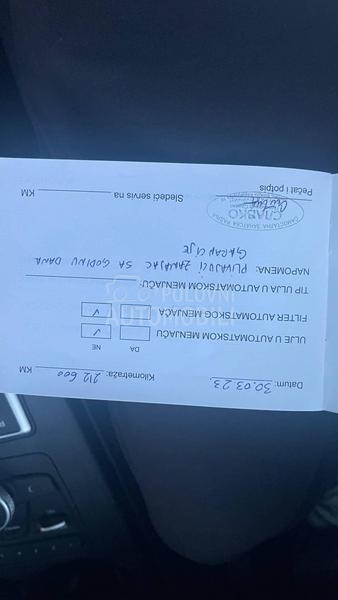 Datum: 30.03.23. Kilometraža: 212 600 KM
DA NE
ULJE U AUTOMATSKOM MENJAČU ✓
FILTER AUTOMATSKOG MENJAČA ✓
TIP ULJA U AUTOMATSKOM MENJAČU:
NAPOMENA: PLIVAJUĆI ZAMAJAC SA GODINU DANA
GARANCIJE
САМОСТАЛНА ЗАНАТСКА РАДЊА
СЛАВКО
Pečat i potpis Sledeći servis na KM
POLOVNI
AUTOMOBILI